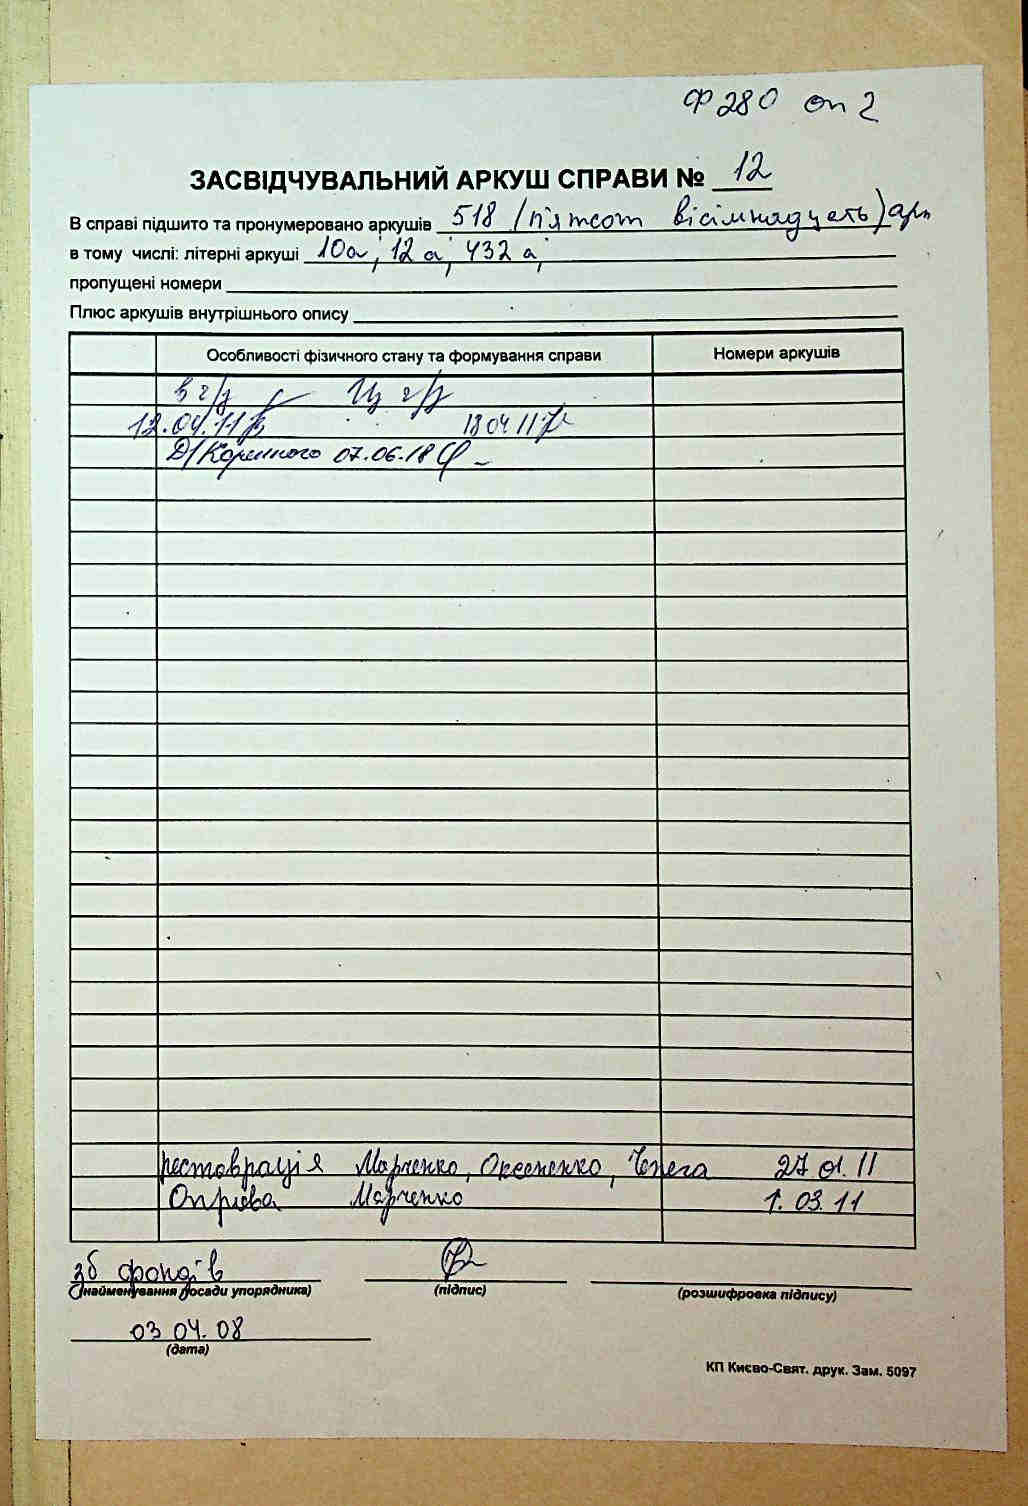 Ф 280 оп 2
ЗАСВІДЧУВАЛЬНИЙ АРКУШ СПРАВИ № 12
В справі підшито та пронумеровано аркушів 518 (п'ятсот вісімнадцять) арк
в тому числі: літерні аркуші 10а, 12а, 432а,
пропущені номери
Плюс аркушів внутрішнього опису
Особливості фізичного стану та формування справи Номери аркушів
12.04.11 18 04 11
07.06.18
реставрація Марченко, Оксененко, Чепега 27 01. 11
Оправа Марченко 1. 03. 11
зб фондів
(найменування посади упорядника) (підпис) (розшифровка підпису)
03 04. 08
(дата)
КП Києво-Свят. друк. Зам. 5097